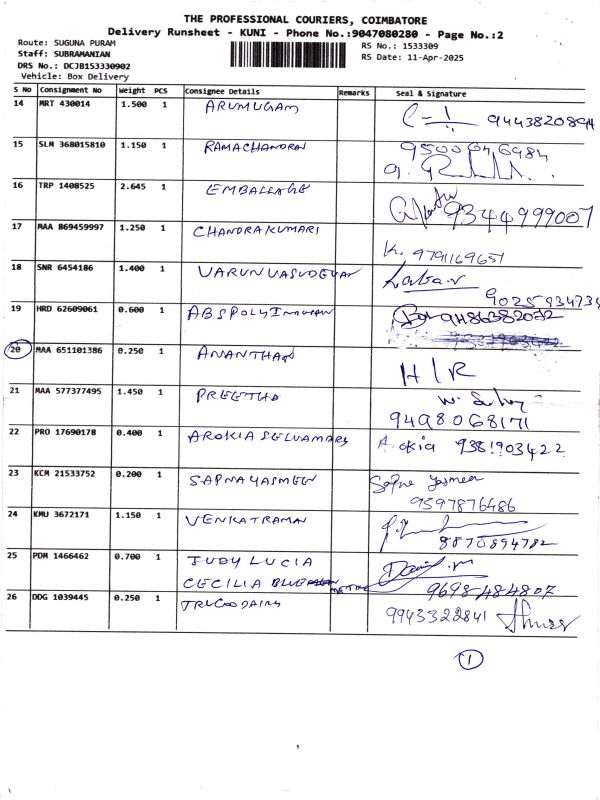 THE PROFESSIONAL COURIERS, COIMBATORE
Delivery Runsheet - KUNI - Phone No.:9047080280 - Page No.:2
Route: SUGUNA PURAM
Staff: SUBRAMANIAN
DRS No.: DCJB153330902
Vehicle: Box Delivery
RS No.: 1533309
RS Date: 11-Apr-2025
S No Consignment No Weight PCS Consignee Details Remarks Seal & Signature
14 MRT 430014 1.500 1 ARUMUGAM 9443820894
15 SLM 368015810 1.150 1 RAMACHANDRAN
16 TRP 1408525 2.645 1 EMBALLAGE 9344999007
17 MAA 869459997 1.250 1 CHANDRAKUMARI K. 9791169651
18 SNR 6454186 1.400 1 VARUNVASUDEVAN
19 HRD 62609061 0.600 1 ABSPOLY
20 MAA 651101386 0.250 1 ANANTHAN H/R
21 MAA 577377495 1.450 1 PREETHA
9498068171
22 PRO 17690178 0.400 1 AROKIA SELVAMARY 9381903422
23 KCM 21533752 0.200 1 SAPNAYASMEEN Sapna Yasmeen
9597876486
24 KMU 3672171 1.150 1 VENKATRAMAN
8870894782
25 PDM 1466462 0.700 1 JUDY LUCIA
CECILIA 9698484807
26 DDG 1039445 0.250 1 9943322841
1